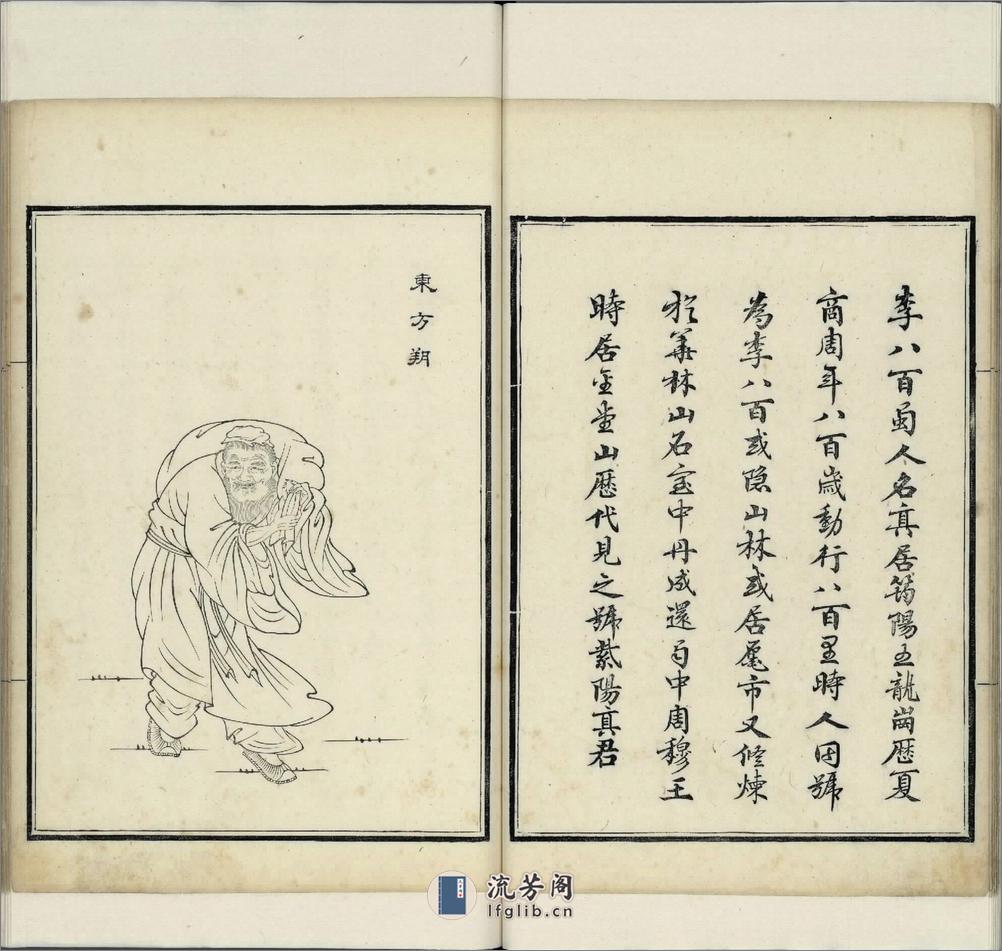 李八百蜀人名真居筠陽五龍崗歷夏
商周年八百歲動行八百里時人因號
為李八百或隐山林或居廛市又修煉
於華林山石室中丹成還蜀中周穆王
時居金堂山歷代見之號紫陽真君
東方朔
流芳阁
lfglib.cn